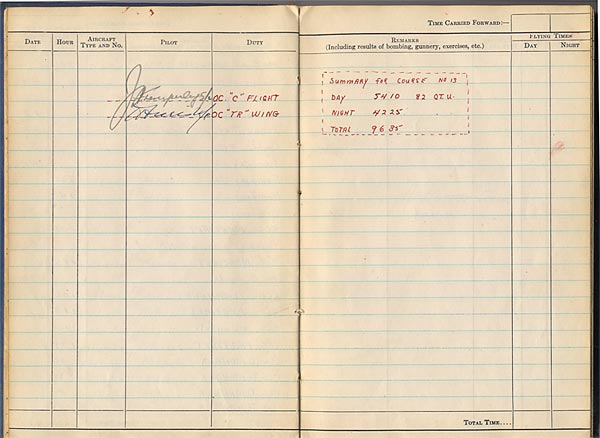 TIME CARRIED FORWARD:—
DATE HOUR AIRCRAFT TYPE AND NO. PILOT DUTY
REMARKS
(Including results of bombing, gunnery, exercises, etc.)
FLYING TIMES
DAY NIGHT
OC. "C" FLIGHT
OC "TR" WING
SUMMARY FOR COURSE No 13
DAY 5410 82 O.T.U.
NIGHT 4225
TOTAL 9635
TOTAL TIME....